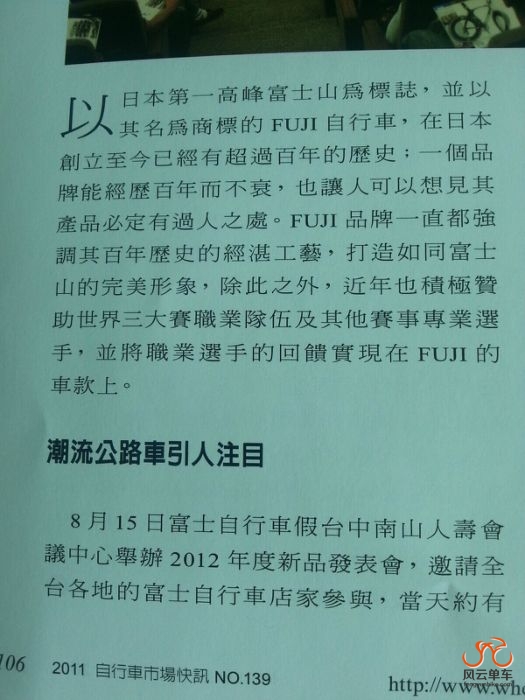 以日本第一高峰富士山爲標誌，並以
其名爲商標的 FUJI 自行車，在日本
創立至今已經有超過百年的歷史；一個品
牌能經歷百年而不衰，也讓人可以想見其
產品必定有過人之處。FUJI 品牌一直都強
調其百年歷史的經湛工藝，打造如同富士
山的完美形象，除此之外，近年也積極贊
助世界三大賽職業隊伍及其他賽事專業選
手，並將職業選手的回饋實現在 FUJI 的
車款上。
潮流公路車引人注目
8 月 15 日富士自行車假台中南山人壽會
議中心舉辦 2012 年度新品發表會，邀請全
台各地的富士自行車店家參與，當天約有
106 2011 自行車市場快訊 NO.139
http://www.whe
风云单车